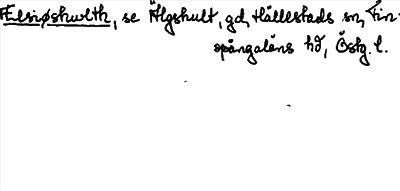 Ælsiøshwlth, se Älgshult, gd, Hällestads sn, Fin-
spångaläns hd, Östg. l.